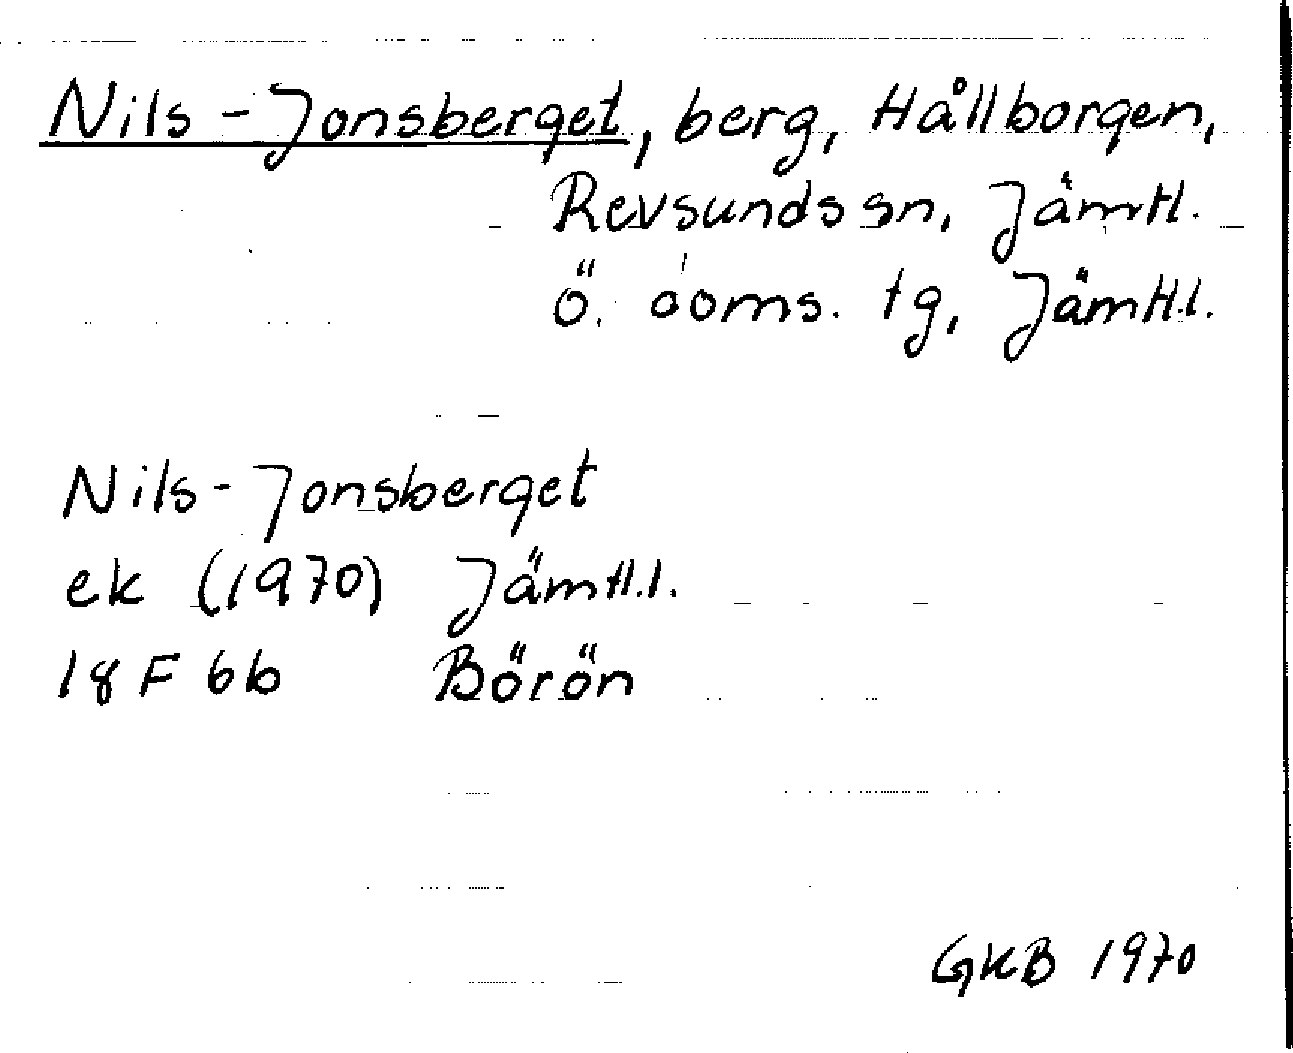 Nils-Jonsberget, berg, Hållborgen,
Revsunds sn, Jämtl.
Ö. doms. tg, Jämtl.l.
Nils-Jonsberget
ek (1970) Jämtl.l.
18 F 6b Börön
GKB 1970